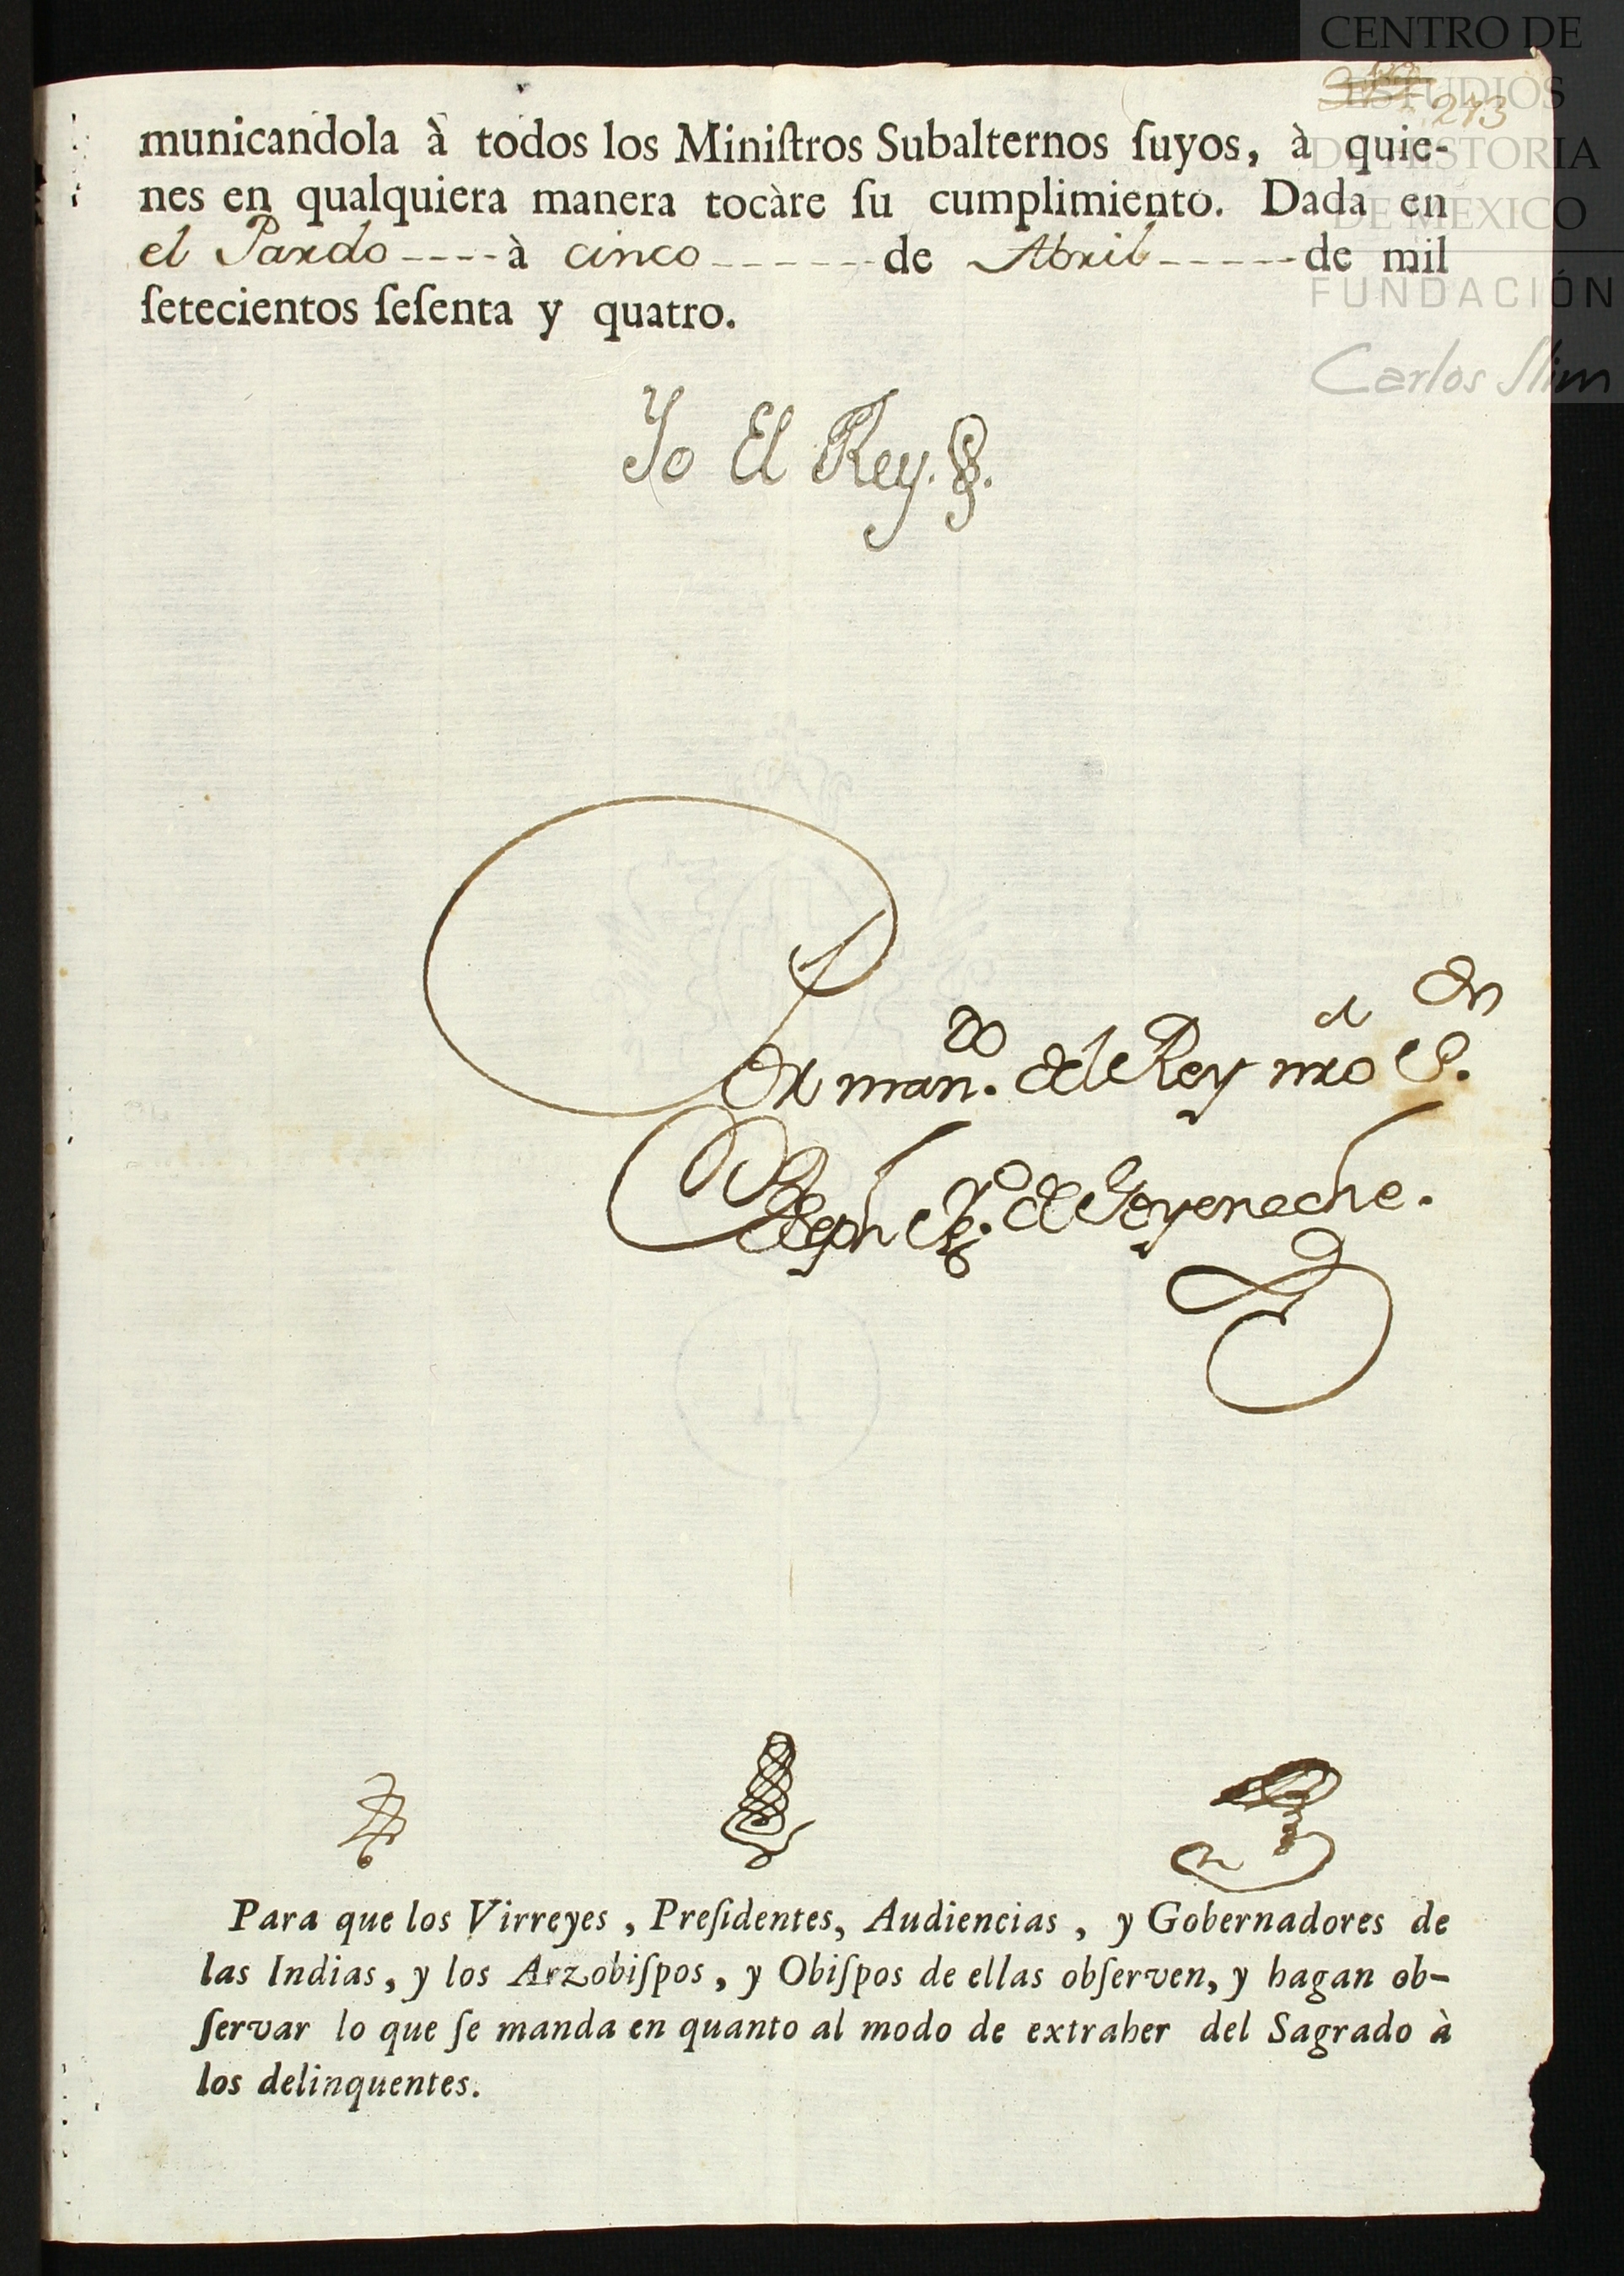 CENTRO DE
ESTUDIOS
DE HISTORIA
DE MÉXICO
FUNDACIÓN
Carlos Slim
273
municandola à todos los Miniſtros Subalternos ſuyos, à quie-
nes en qualquiera manera tocàre ſu cumplimiento. Dada en
el Pardo ---- à cinco ------ de Abril ----- de mil
ſetecientos ſeſenta y quatro.
Yo El Rey.
Por man.do del Rey nro S.or
Joseph Ig.o de Goyeneche.
Para que los Virreyes, Preſidentes, Audiencias, y Gobernadores de
las Indias, y los Arzobiſpos, y Obiſpos de ellas obſerven, y hagan ob-
ſervar lo que ſe manda en quanto al modo de extraher del Sagrado à
los delinquentes.